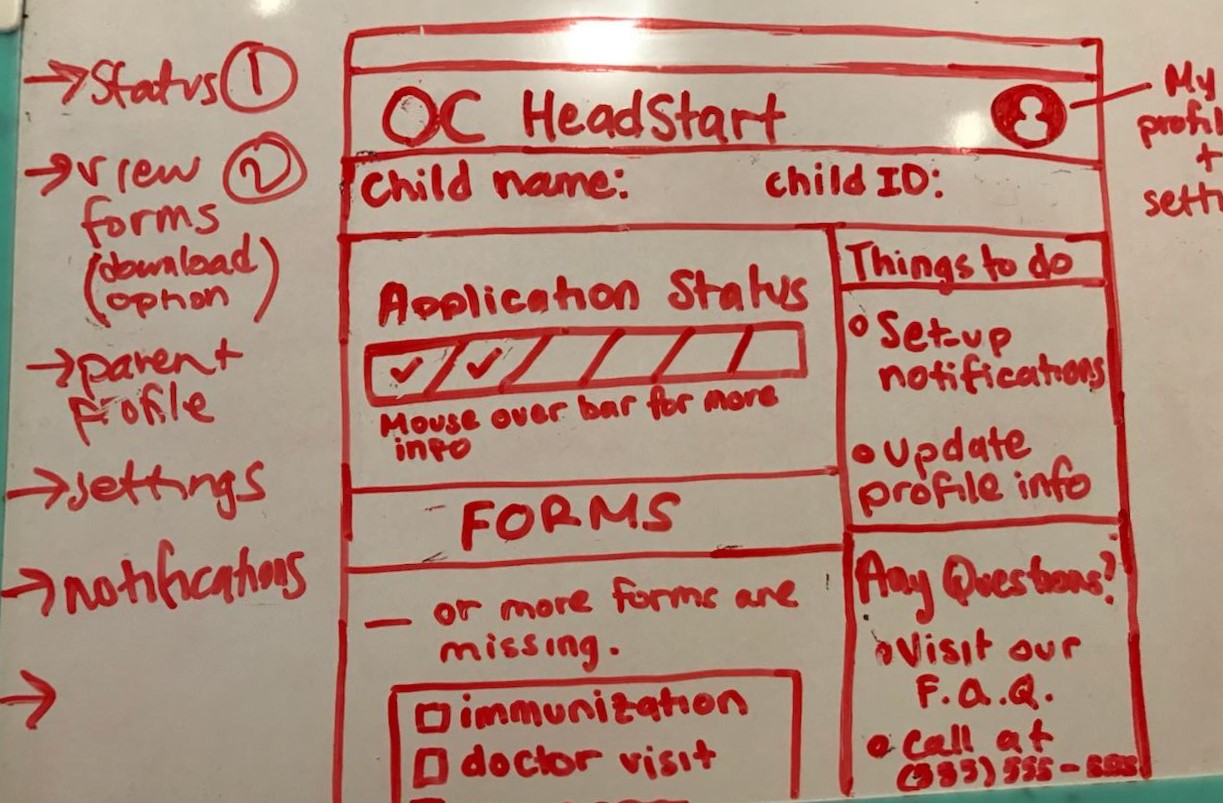 → Status ①
→ view ②
forms
(download
option)
→ parent
profile
→ settings
→ notifications
→
OC HeadStart
My
+
Child name: child ID:
Application Status
Mouse over bar for more
info
FORMS
— or more forms are
missing.
□ immunization
□ doctor visit
Things to do
• Set-up
notifications
• Update
profile info
Any Questions?
• Visit our
F.A.Q.
• Call at